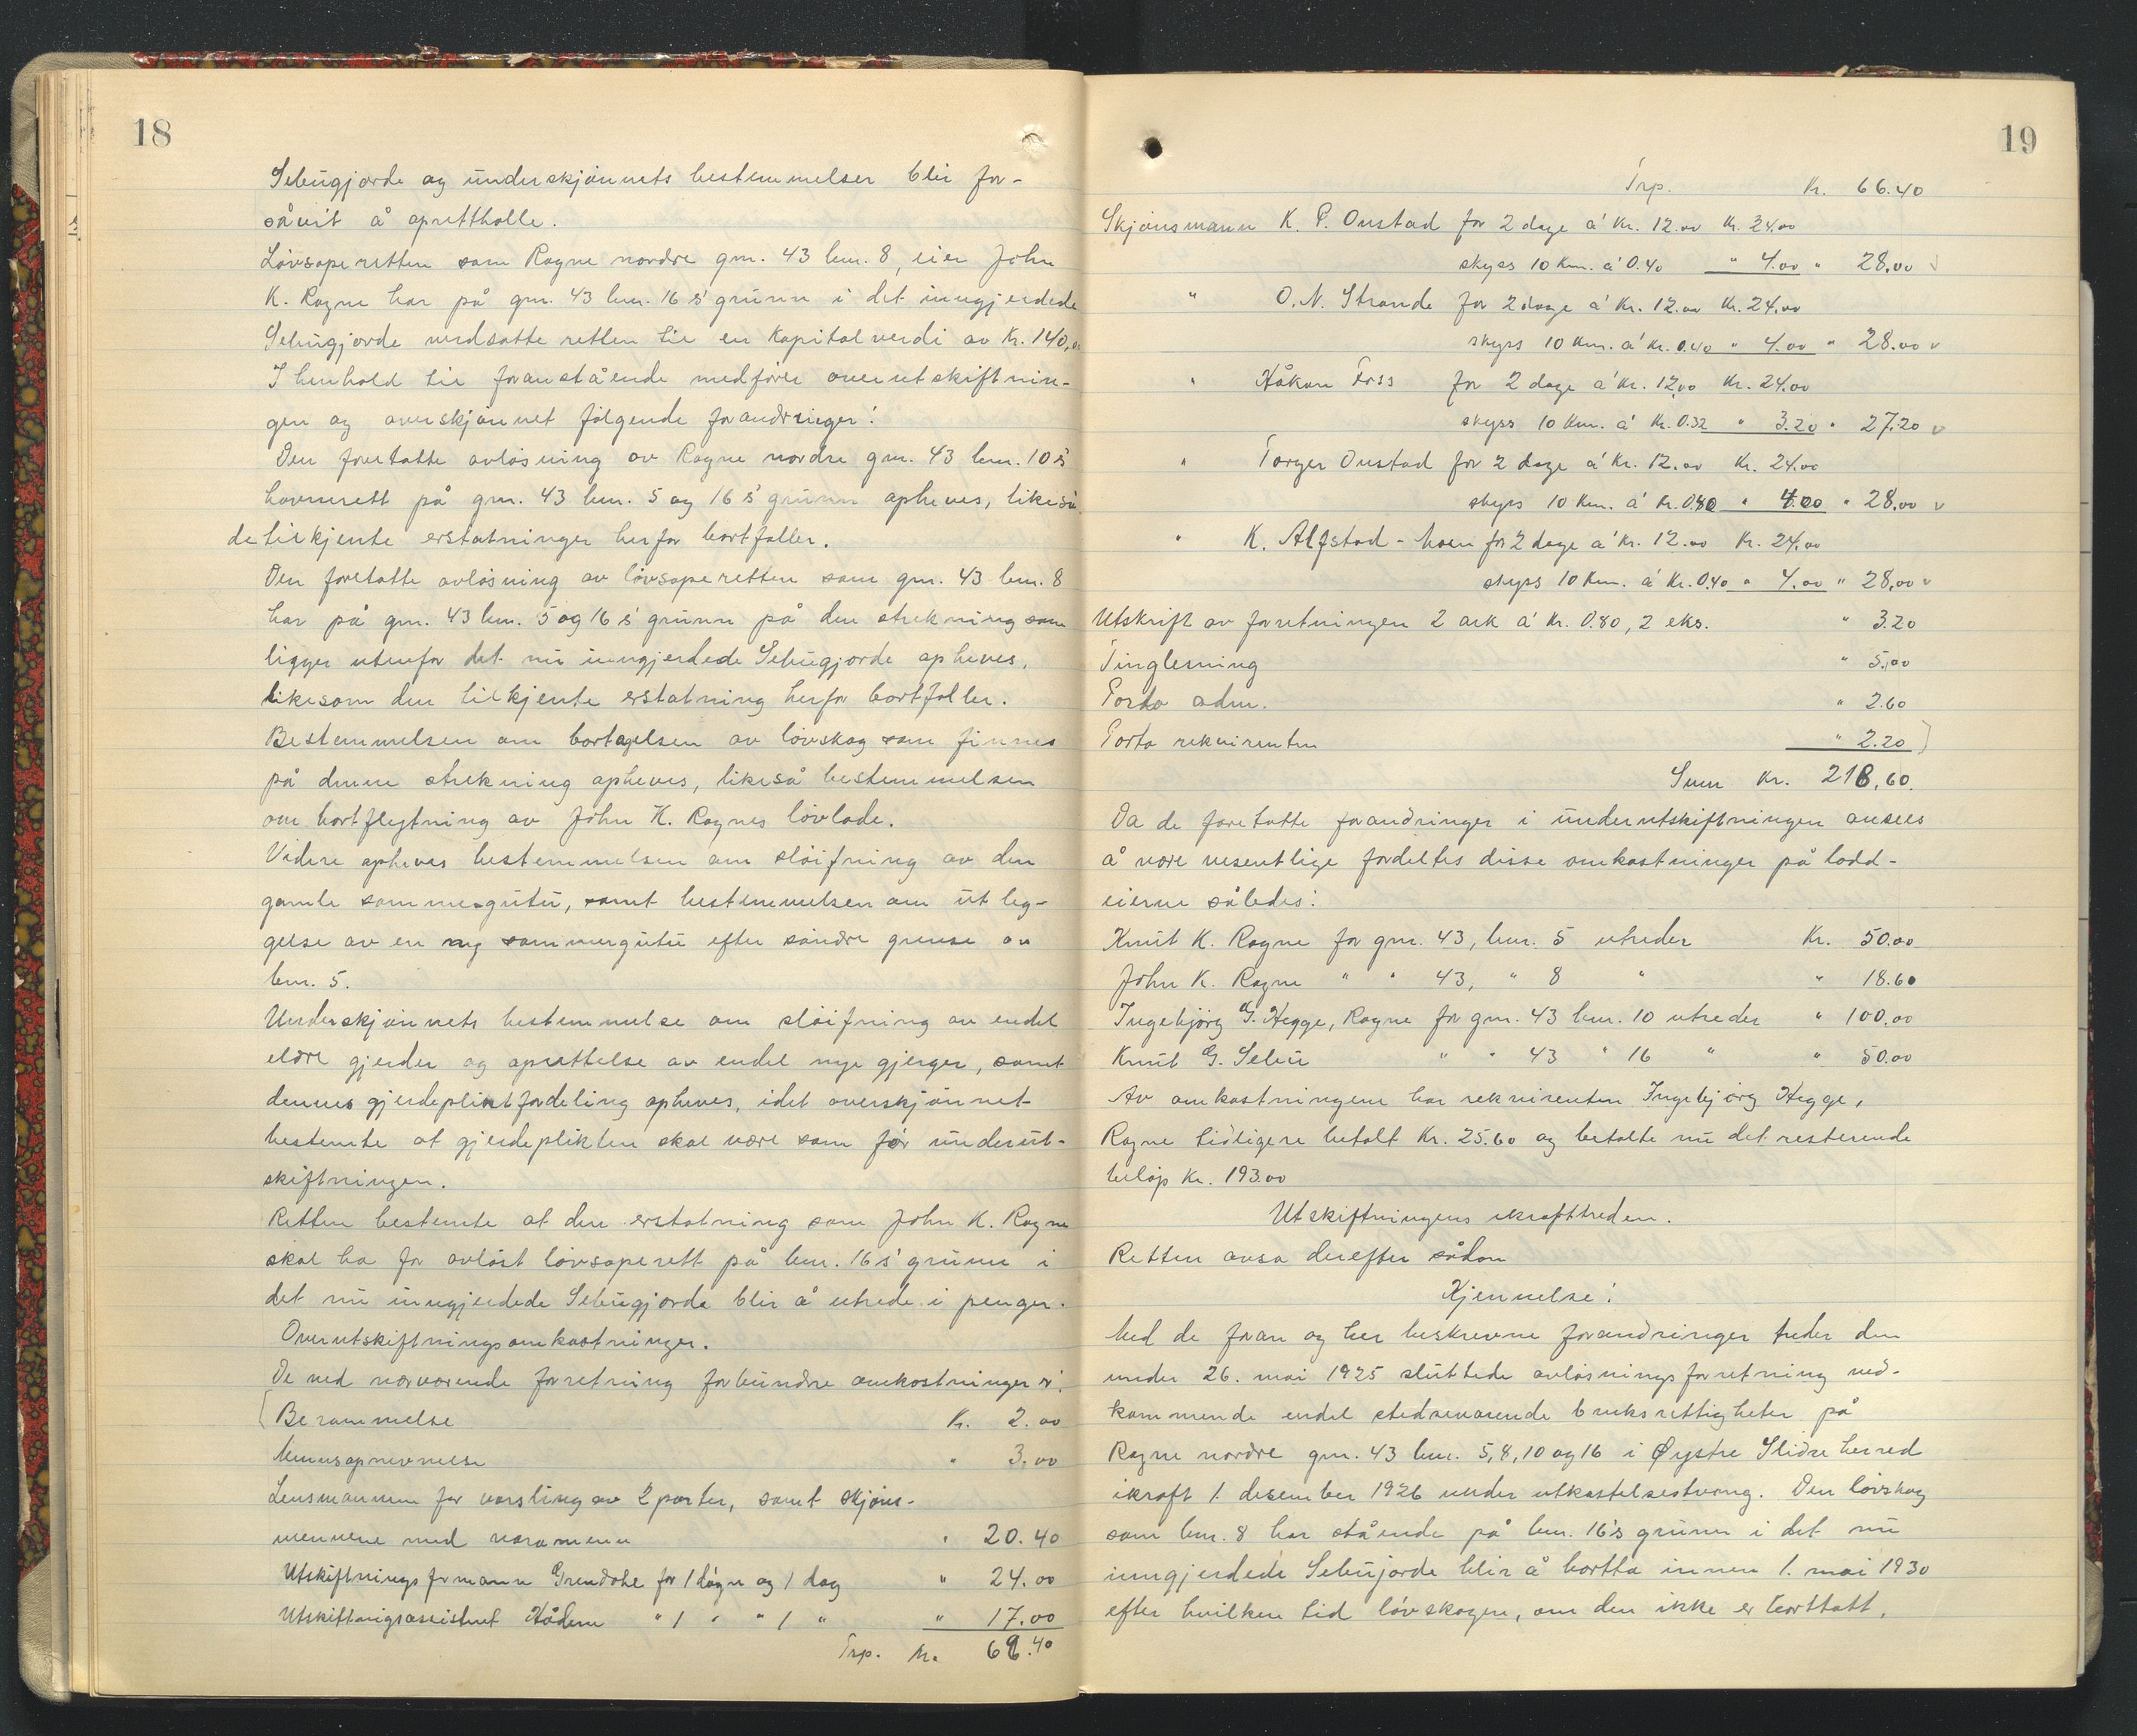 18
Sebugjorde og underskjønnets bestemmelser blir for-
såvit å oprettholle.
Løvsoperetten som Rogne nordre gnr. 43 bnr. 8, eier John
K. Rogne har på gnr. 43 bnr. 16 s' grunn i det inngjerdede
Sebugjorde verdsatte retten til en kapitalverdi av kr. 140,00
I henhold til foranstående medfører overutskiftnin-
gen og overskjønnet følgende forandringer:
Den foretatte avløsning av Rogne nordre gnr. 43 bnr. 10 s'
havnerett på gnr. 43 bnr. 5 og 16 s' grunn opheves, likeså
de tilkjente erstatninger herfor bortfaller.
Den foretatte avløsning av løvsoperetten som gnr. 43 bnr. 8
har på gnr. 43 bnr. 5 og 16 s' grunn på den strekning som
ligger utenfor det nu inngjerdede Sebugjorde opheves,
likesom den tilkjente erstatning herfor bortfaller.
Bestemmelsen om bortagelsen av løvskog som finnes
på denne strekning opheves, likeså bestemmelsen
om bortflytning av John K. Rognes løvlade.
Videre opheves bestemmelsen om sløifning av den
gamle sommergutu, samt bestemmelsen om utleg-
gelse av en ny sommergutu efter søndre grense av
bnr. 5.
Underskjønnets bestemmelse om sløifning av endel
eldre gjerder og oprettelse av endel nye gjerger, samt
dennes gjerdepliktfordeling opheves, idet overskjønnet
bestemte at gjerdeplikten skal være som før underut-
skiftningen.
Retten bestemte at den erstatning som John K. Rogne
skal ha for avløst løvsoperett på bnr. 16 s' grunn i
det nu inngjerdede Sebugjorde blir å utrede i penger.
Overutskiftningsomkostninger.
De ved nærværende forretning forbundne omkostninger er:
Berammelse Kr. 2.00
Mennsopnevnelse " 3.00
Lensmannen for varsling av 2 parter, samt skjøns-
mennene med varamenn " 20.40
Utskiftningsformann Grendahl for 1 døgn og 1 dag " 24.00
Utskiftnigsassistent Hådem " 1 " " 1 " " 17.00
Trp. Kr. 66.40
19
Trp. Kr. 66.40
Skjønsmann K. P. Onstad for 2 dage á kr. 12.00 kr. 24.00
skyss 10 km. á 0.40 " 4.00 " 28.00 v
" O. N. Strande for 2 dage á kr. 12.00 kr. 24.00
skyss 10 km. á kr. 0.40 " 4.00 " 28.00 v
" Håkon Foss for 2 dage á kr. 12.00 kr. 24.00
skyss 10 km. á kr. 0.32 " 3.20 " 27.20 v
" Torger Onstad for 2 dage á kr. 12.00 kr. 24.00
skyss 10 km. á kr. 0.40 " 4.00 " 28.00 v
" K. Alfstad - moen for 2 dage á kr. 12.00 kr. 24.00
skyss 10 km. á kr. 0.40 " 4.00 " 28.00 v
Utskrift av forretningen 2 ark á kr. 0.80, 2 eks. " 3.20
Tinglesning " 5.00
Porto adm. " 2.60
Porto rekvirenten " 2.20
Sum kr. 218,60.
Da de foretatte forandringer i underutskiftningen ansees
å være vesentlige fordeltes disse omkostninger på lodd-
eierne således:
Knut K. Rogne for gnr. 43, bnr. 5 utreder Kr. 50.00
John K. Rogne " " 43, " 8 " " 18.60
Ingebjörg G. Hegge, Rogne for gnr. 43 bnr. 10 utreder " 100.00
Knut G. Sebu " " 43 " 16 " " 50.00
Av omkostningene har rekvirenten Ingebjørg Hegge,
Rogne tidligere betalt kr. 25.60 og betalte nu det resterende
beløp kr. 193.00
Utskiftningens ikrafttreden.
Retten avsa derefter sådan
Kjennelse:
Med de foran og her beskrevne forandringer treder den
under 26. mai 1925 sluttede avløsningsforretning ved-
kommende endel stedsevarende bruksrettigheter på
Rogne nordre gnr. 43 bnr. 5, 8, 10 og 16 i Øystre Slidre herred
ikraft 1. desember 1926 under utkastelsestvang. Den løvskog
som bnr. 8 har stående på bnr. 16's grunn i det nu
inngjerdede Sebujorde blir å bortta innen 1. mai 1930
efter hvilken tid løvskogen, om den ikke er borttatt,